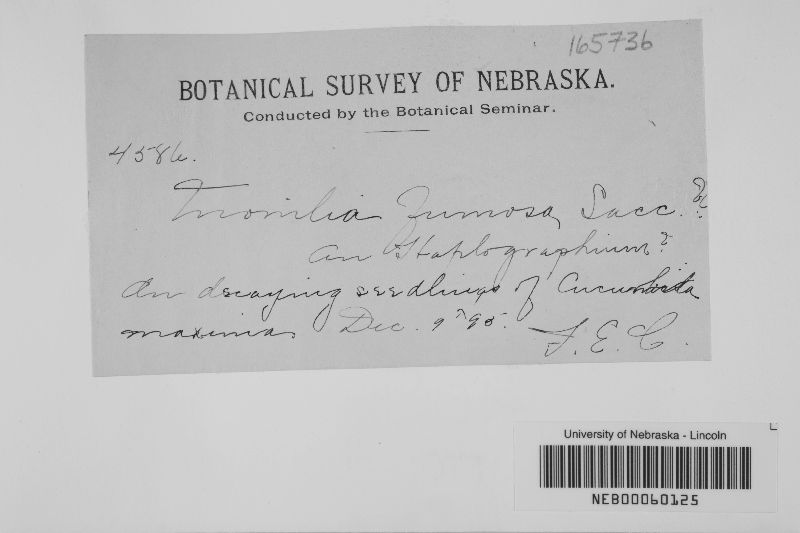 165736
BOTANICAL SURVEY OF NEBRASKA.
Conducted by the Botanical Seminar.
4586.
Monilia fumosa, Sacc.
an Haplographium?
On decaying seedlings of Cucurbita
maxima. Dec. 9, '95. F. E. C.
University of Nebraska - Lincoln
NEB00060125